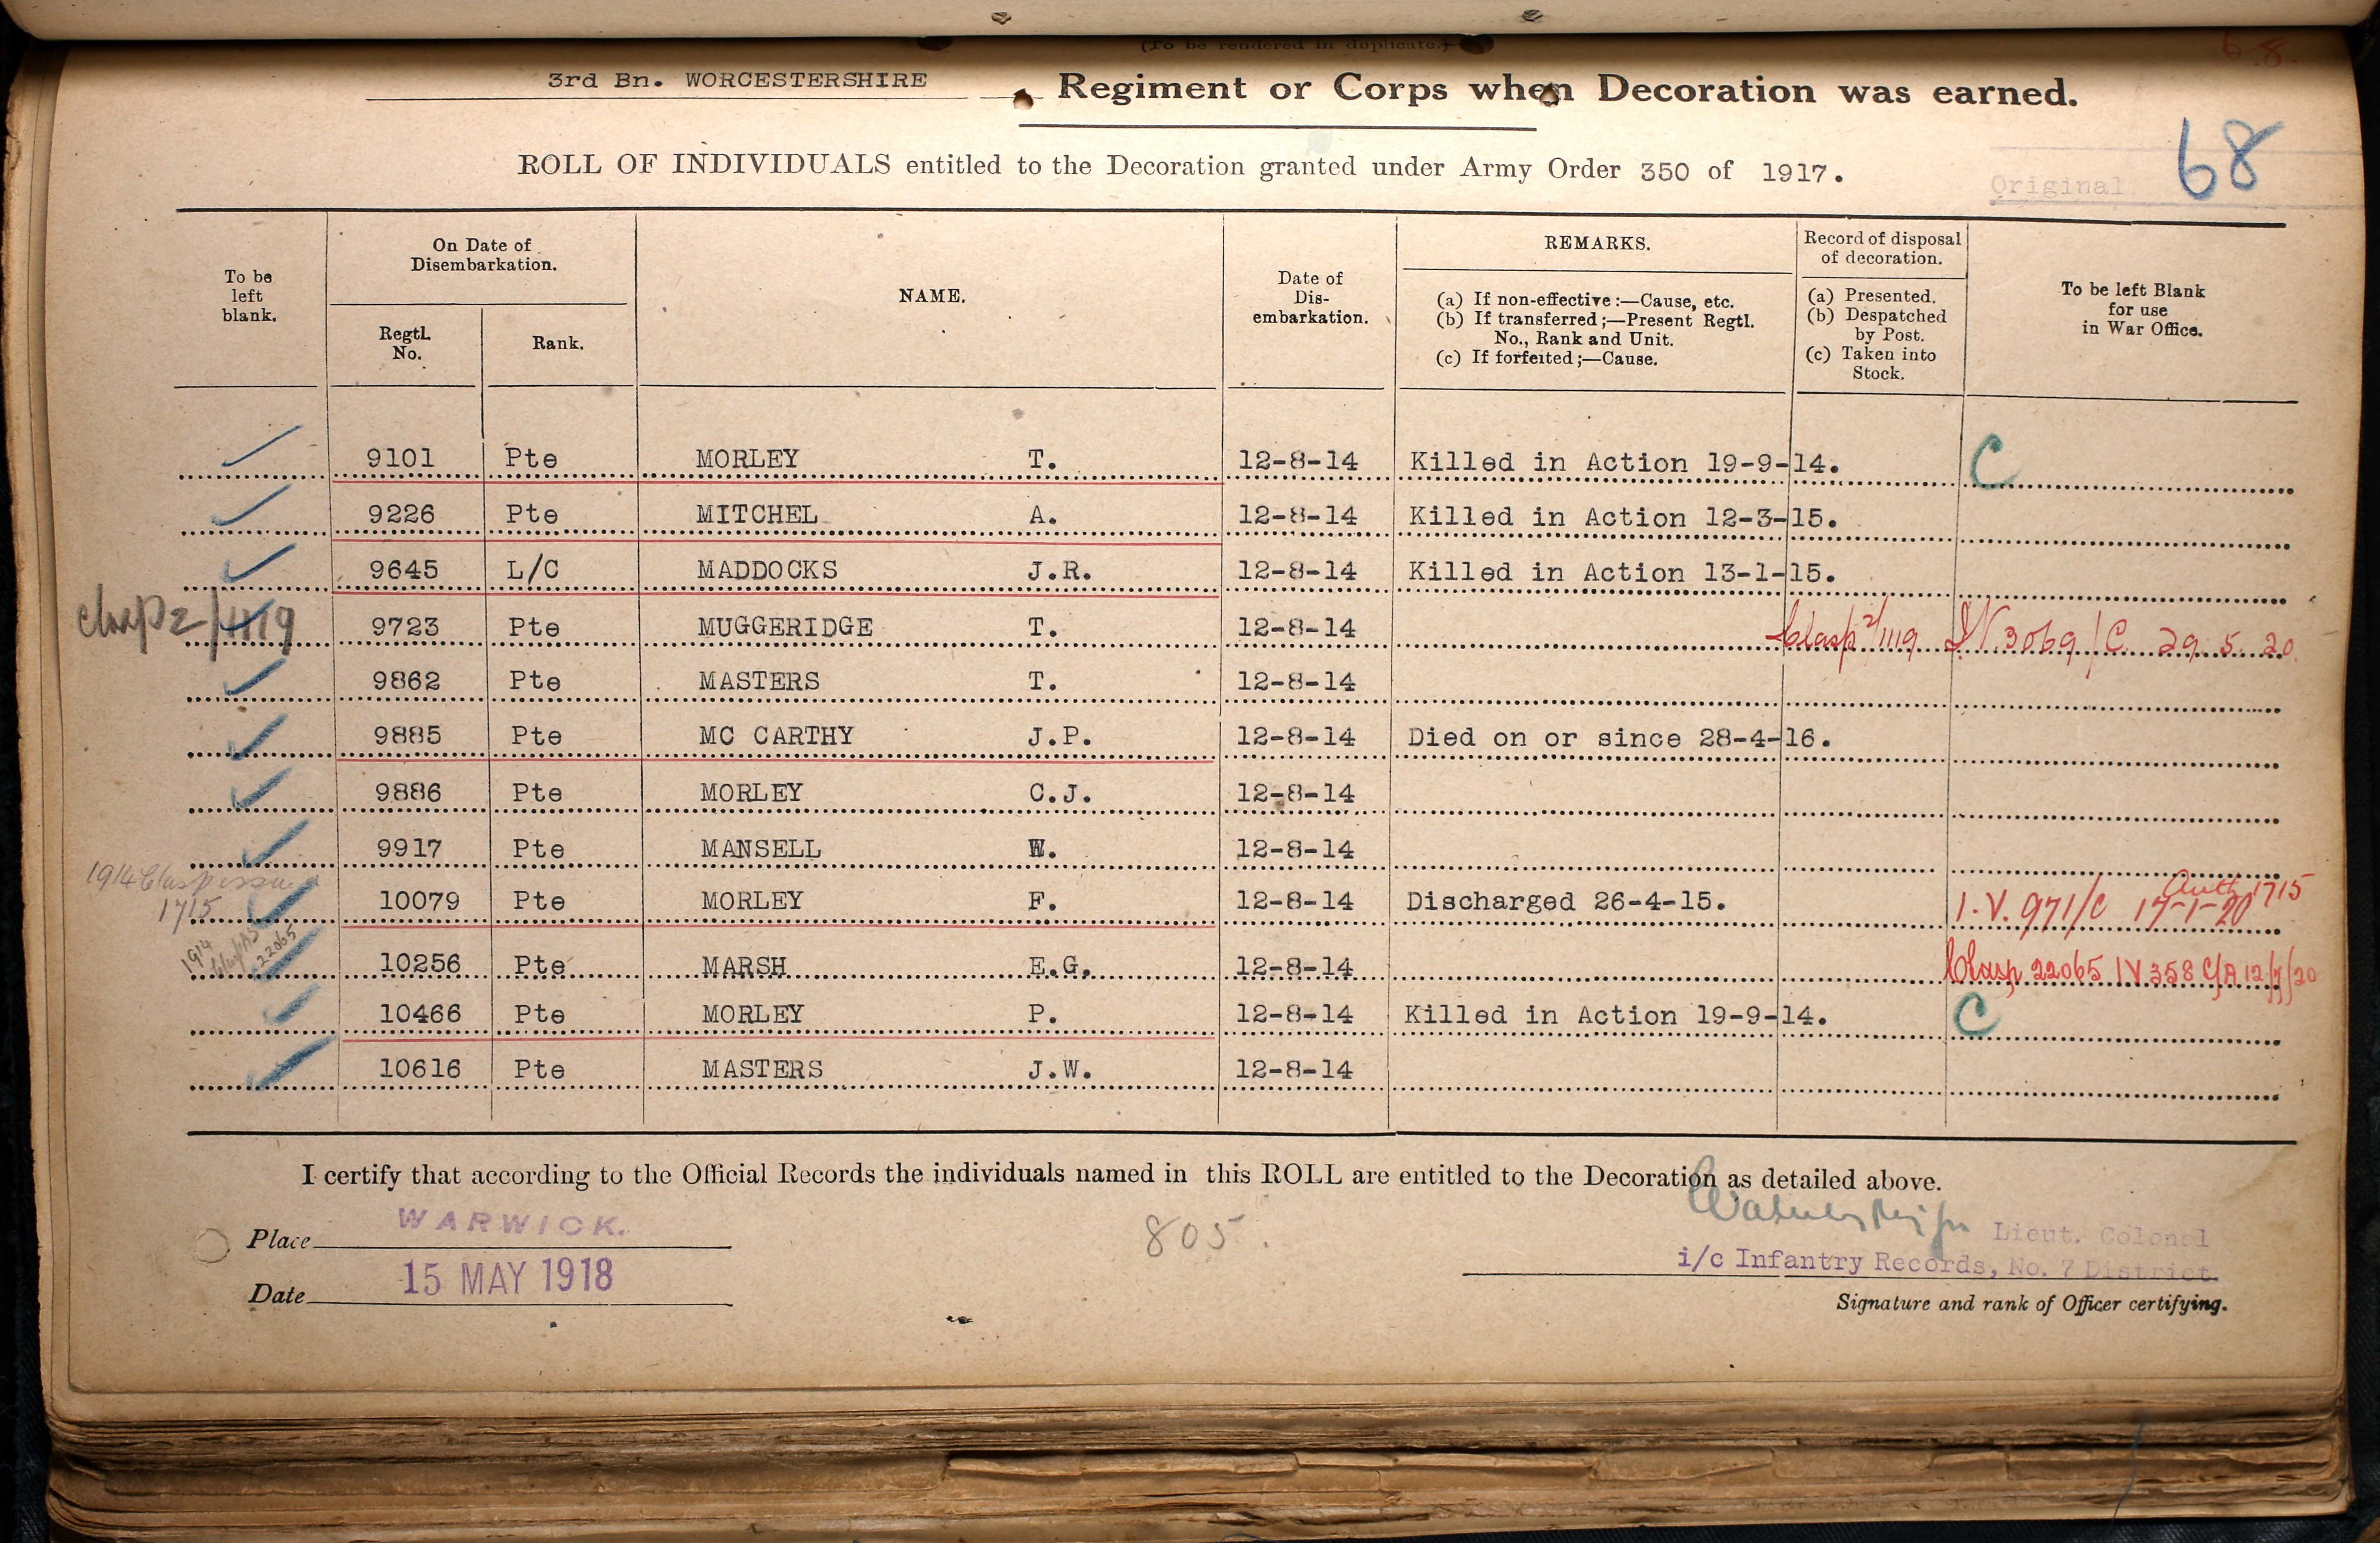 (To be rendered in duplicate.)
68.
3rd Bn. WORCESTERSHIRE Regiment or Corps when Decoration was earned.
68
ROLL OF INDIVIDUALS entitled to the Decoration granted under Army Order 350 of 1917.
Original
To be left blank.
On Date of Disembarkation.
Regtl. No.
Rank.
NAME.
Date of Dis-embarkation.
REMARKS.
(a) If non-effective:—Cause, etc.
(b) If transferred;—Present Regtl. No., Rank and Unit.
(c) If forfeited;—Cause.
Record of disposal of decoration.
(a) Presented.
(b) Despatched by Post.
(c) Taken into Stock.
To be left Blank for use in War Office.
9101 Pte MORLEY T. 12-8-14 Killed in Action 19-9-14. C
9226 Pte MITCHEL A. 12-8-14 Killed in Action 12-3-15.
9645 L/C MADDOCKS J.R. 12-8-14 Killed in Action 13-1-15.
clasp 2/1119 9723 Pte MUGGERIDGE T. 12-8-14 Clasp 2/1119 I.V.3069/C 29.5.20.
9862 Pte MASTERS T. 12-8-14
9885 Pte MC CARTHY J.P. 12-8-14 Died on or since 28-4-16.
9886 Pte MORLEY C.J. 12-8-14
9917 Pte MANSELL W. 12-8-14
1914 Clasp issued
1715 10079 Pte MORLEY F. 12-8-14 Discharged 26-4-15. I.V.971/C 17-1-20 Auth 1715
1914 Clasp 22065 10256 Pte MARSH E.G. 12-8-14 Clasp 22065 IV358 C/A 12/7/20
10466 Pte MORLEY P. 12-8-14 Killed in Action 19-9-14. C
10616 Pte MASTERS J.W. 12-8-14
I certify that according to the Official Records the individuals named in this ROLL are entitled to the Decoration as detailed above.
Place WARWICK.
805.
Lieut. Colonel
i/c Infantry Records, No. 7 District.
Date 15 MAY 1918
Signature and rank of Officer certifying.